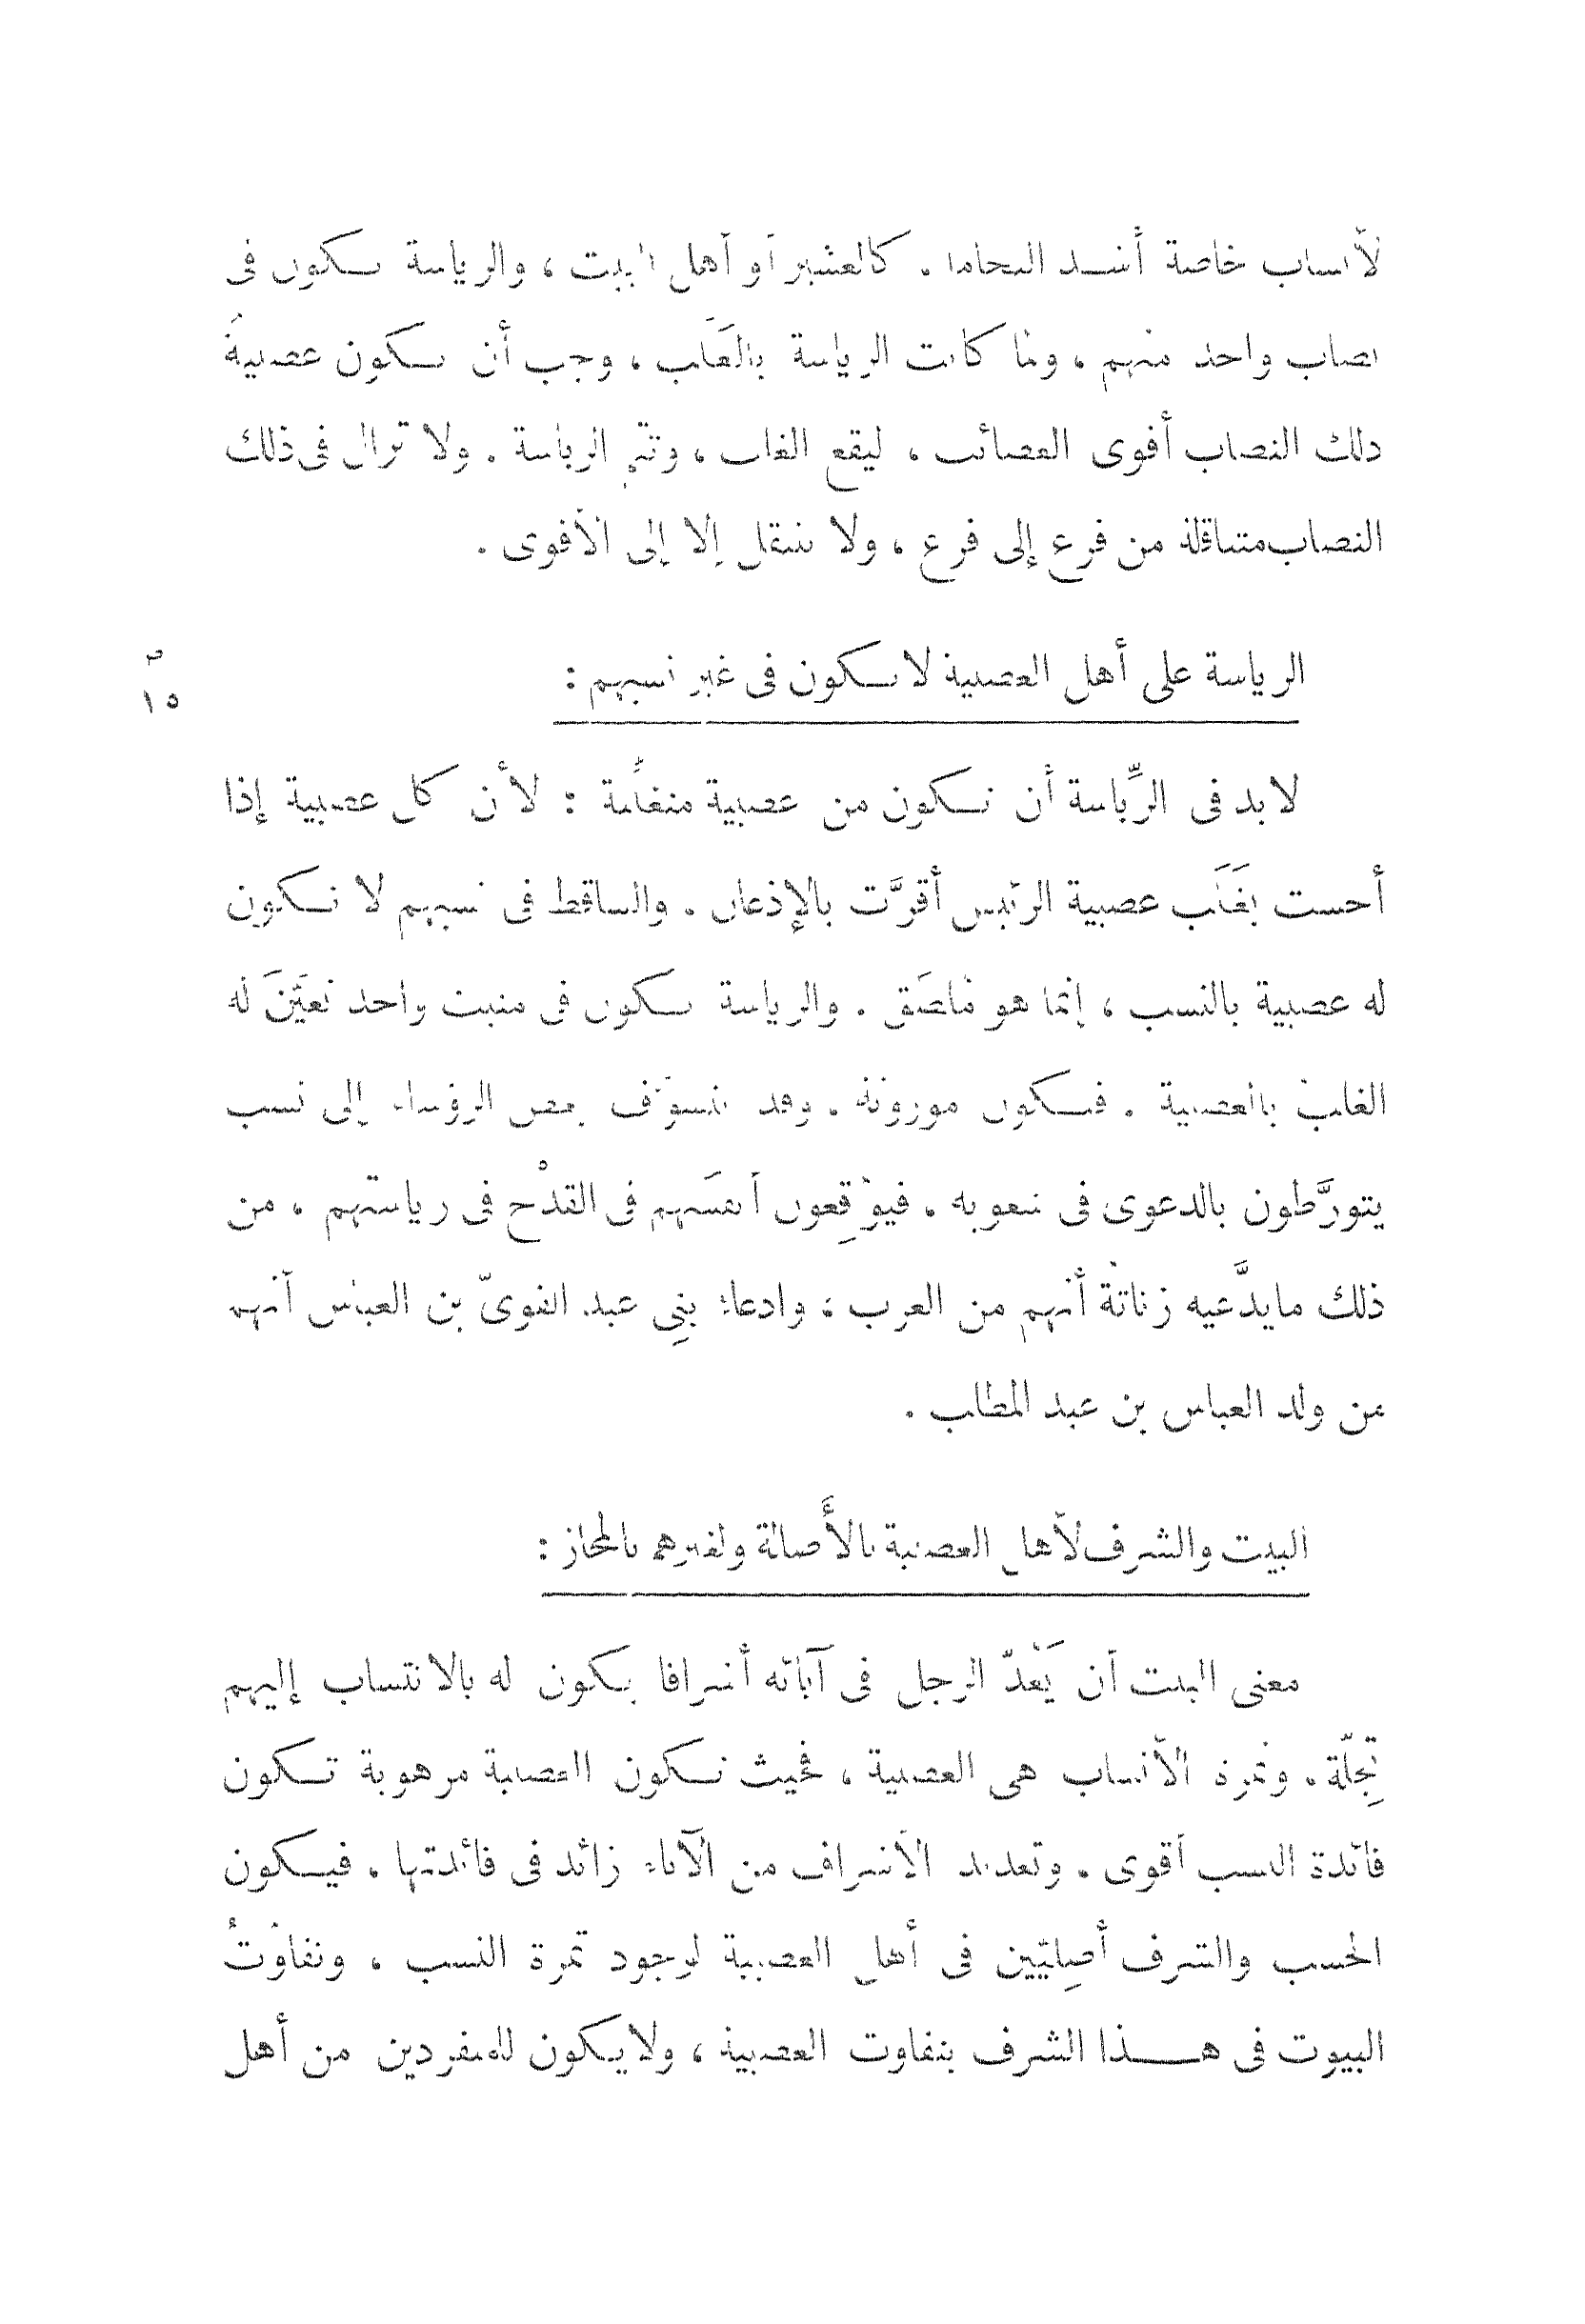 لأنساب خاصة أشد التحاما . كالعشير أو أهل البيت ، والرياسة تكون فى
نصاب واحد منهم ، ولما كانت الرياسة بالغَلَب ، وجب أن تكون عصبيةُ
ذلك النصاب أقوى العصائب ، ليقع الغلب ، وتتم الرياسة . ولا تزال فى ذلك
النصاب متناقلة من فرع إلى فرع ، ولا تنتقل إلا إلى الأقوى .
الرياسة على أهل العصبية لا تكون فى غير نسبهم :
ص
١٥
لا بد فى الرِّياسة أن تكون من عصبية متغلِّبة : لأن كل عصبية إذا
أحست بغَلَب عصبية الرئيس أقرَّت بالإذعان . والساقط فى نسبهم لا تكون
له عصبية بالنسب ، إنما هو مُلصَق . والرياسة تكون فى منبت واحد تعيَّنَ له
الغلبُ بالعصبية . فتكون موروثة . وقد يتشوّف بعض الرؤساء إلى نسب
يتورَّطون بالدعوى فى شعوبه . فيوْقِعون أنفسَهم فى القدْح فى رياستهم ، من
ذلك ما يدَّعيه زناتة أنهم من العرب ؛ وادعاء بنِى عبد القوىّ بن العباس أنهم
من ولد العباس بن عبد المطلب .
البيت والشرف لأهل العصبية بالأَصالة ولغيرهم بالمجاز :
معنى البيت أن يَعُدّ الرجل فى آبائه أشرافا يكون له بالانتساب إليهم
تَجِلّة . وثمرة الأنساب هى العصبية ، فحيث تكون العصبية مرهوبة تكون
فائدة النسب أقوى . وتعديد الأشراف من الآباء زائد فى فائدتها . فيكون
الحسب والشرف أصلِيّين فى أهل العصبية لوجود ثمرة النسب ، وتفاوُتُ
البيوت فى هذا الشرف بتفاوت العصبية ، ولا يكون للمنفردين من أهل